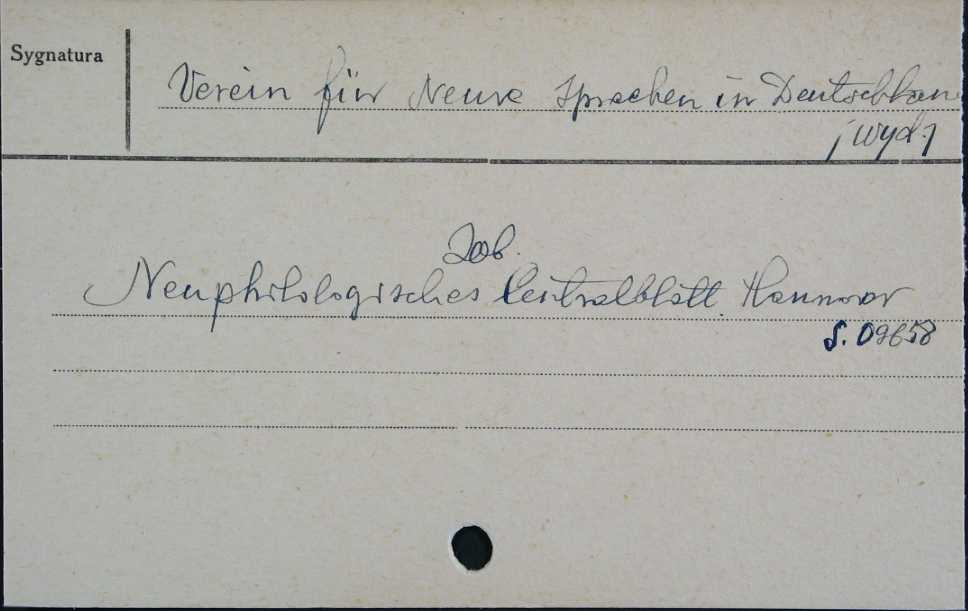 Sygnatura
Verein für Neure Sprachen in Deutschlan
/wyd./
Zob.
Neuphilologisches Centralblatt. Hannover
S. 09658